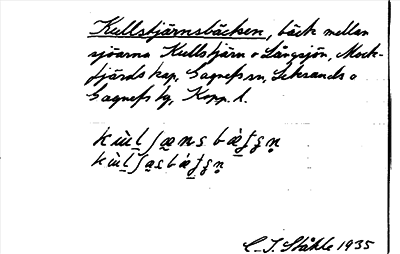 Kullstjärnsbäcken, bäck mellan
sjöarna Kullstjärn o Långsjön, Mock-
fjärds kap, Gagnefs sn, Leksands o
Gagnefs tg, Kopp. l.
C-I. Ståhle 1935